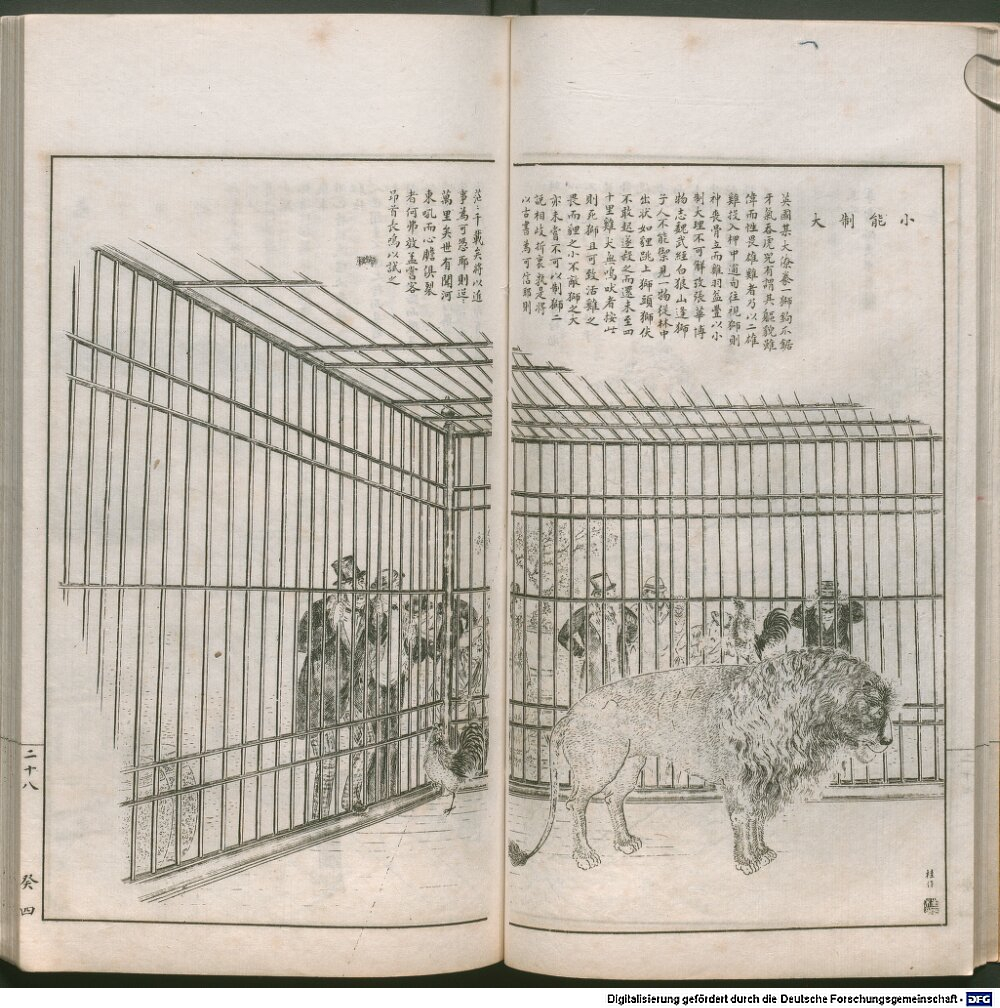 小能制大
英國某大僚豢一獅鈎爪鋸
牙氣吞虎兕有謂其軀貌雖
偉而性畏雄雞者乃以二雄
雞投入柙中適旬往視獅則
神喪骨立而雞羽益豐以小
制大理不可解攷張華博
物志魏武經白狼山逢獅
子人不能禦見一物從林中
出狀如貍跳上獅頭獅伏
不敢起遂殺之而還未至四
十里雞犬無鳴吠者按此
則死獅且可致活雞之
畏而貍之小不敵獅之大
亦未嘗不可以制獅二
說相歧折衷孰是將
以古書為可信耶則
茫茫千載矣將以近
事為可慿耶則逕
萬里矣世有聞河
東吼而心膽俱裂
者何弗效盖嘗容
昂首長鳴以試之
桂作
二十八
癸四
Digitalisierung gefördert durch die Deutsche Forschungsgemeinschaft - DFG